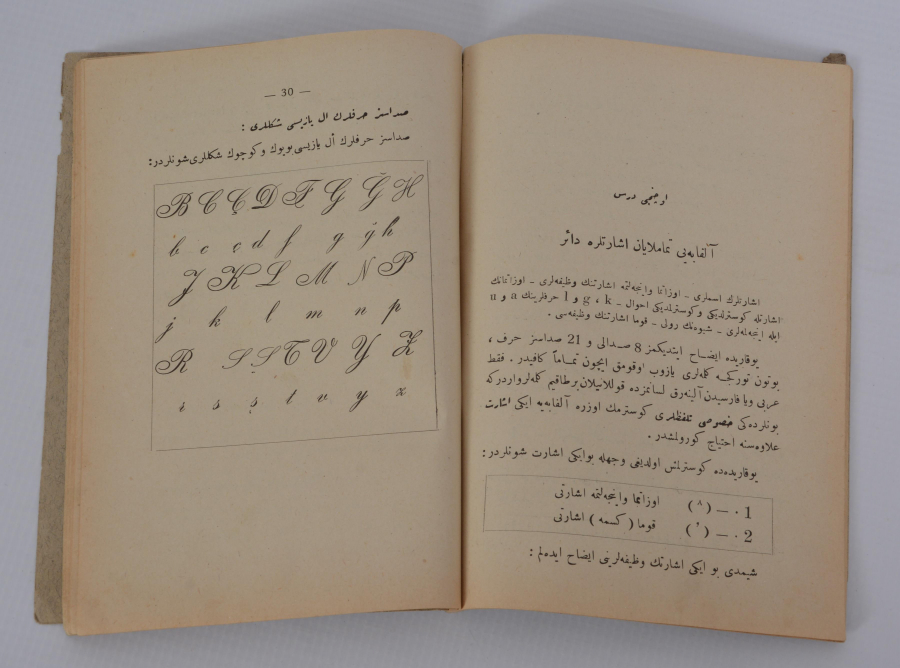 — 30 —
صداسز حرفلرك ال يازيسى شكللرى :
صداسز حرفلرك أل يازيسى بويوك و كوچوك شكللرى شونلردر:
B C Ç D F G Ğ H
b c ç d f g ğ h
J K L M N P
j k l m n p
R S Ş T V Y Z
r s ş t v y z
اوچنجى درس
آلفابه‌يى تماملايان اشارتلره دائر
اشارتلرك اسملرى ـ اوزاتما واينجه‌لتمه اشارتنك وظيفه‌لرى ـ اوزاتمانك
اشارتله كوسترلديكى وكوسترلمديكى احوال ـ g ، k و l حرفلرينك a و u
ايله اينجه‌لمه‌لرى ـ شيوه‌نك رولى ـ قوما اشارتنك وظيفه‌سى .
يوقاريده ايضاح ايتديكمز 8 صدالى و 21 صداسز حرف ،
بوتون توركجه كلمه‌لرى يازوب اوقومق ايچون تماماً كافيدر . فقط
عربى ويا فارسيدن آلينه‌رق لسانمزده قوللانيلان برطاقيم كلمه‌لر واردركه
بونلرده‌كى خصوصى تلفظلرى كوسترمك اوزره آلفابه‌يه ايكى اشارت
علاوه‌سنه احتياج كورولمشدر .
يوقاريده‌ده كوسترلمش اولديغى وجهله بو ايكى اشارت شونلردر:
1 · — (^) اوزاتما واينجه‌لتمه اشارتى
2 · — (') قوما (كسمه) اشارتى
شيمدى بو ايكى اشارتك وظيفه‌لرينى ايضاح ايده‌لم :